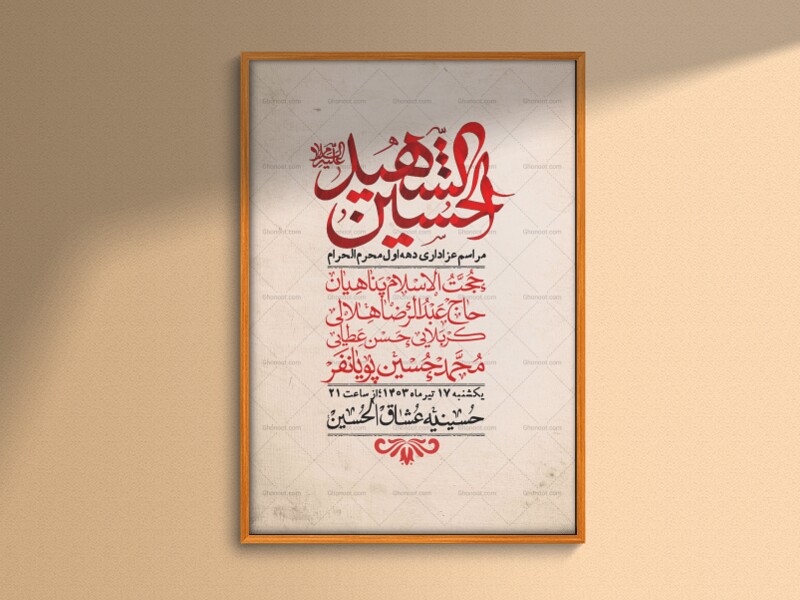 الحسین الشهید علیه السلام
مراسم عزاداری دهه اول محرم الحرام
حُجَّتُ الاسلام پناهیان
حاج عَبدُالرّضا هلالی
کربلایی حَسَن عَطایی
مُحَمَّدحُسین پویانفَر
یکشنبه ۱۷ تیر ماه ۱۴۰۳؛از ساعت ۲۱
حُسینیّه عُشّاق الحُسین
Ghonoot.com